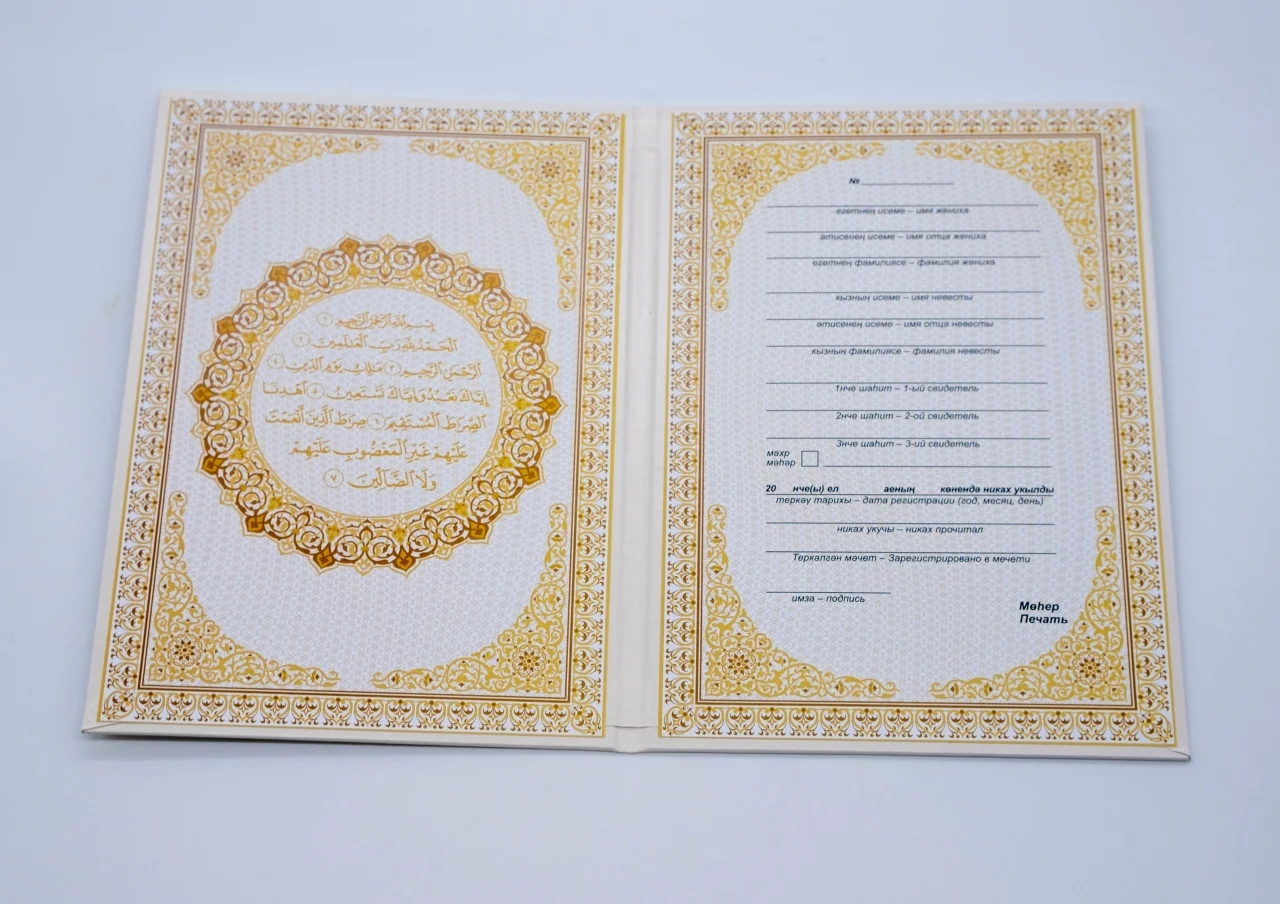 بِسْمِ اللَّهِ الرَّحْمَٰنِ الرَّحِيمِ ١
الْحَمْدُ لِلَّهِ رَبِّ الْعَالَمِينَ ٢
الرَّحْمَٰنِ الرَّحِيمِ ٣ مَالِكِ يَوْمِ الدِّينِ ٤
إِيَّاكَ نَعْبُدُ وَإِيَّاكَ نَسْتَعِينُ ٥ اهْدِنَا
الصِّرَاطَ الْمُسْتَقِيمَ ٦ صِرَاطَ الَّذِينَ أَنْعَمْتَ
عَلَيْهِمْ غَيْرِ الْمَغْضُوبِ عَلَيْهِمْ
وَلَا الضَّالِّينَ ٧
№
егетнең исеме – имя жениха
әтисенең исеме – имя отца жениха
егетнең фамилиясе – фамилия жениха
кызның исеме – имя невесты
әтисенең исеме – имя отца невесты
кызның фамилиясе – фамилия невесты
1нче шаһит – 1-ый свидетель
2нче шаһит – 2-ой свидетель
3нче шаһит – 3-ий свидетель
махр
мәһәр
20 нче(ы) ел аеның көнендә никах укылды
теркәү тарихы – дата регистрации (год, месяц, день)
никах укучы – никах прочитал
Теркәлгән мәчет – Зарегистрировано в мечети
имза – подпись
Мөһер
Печать